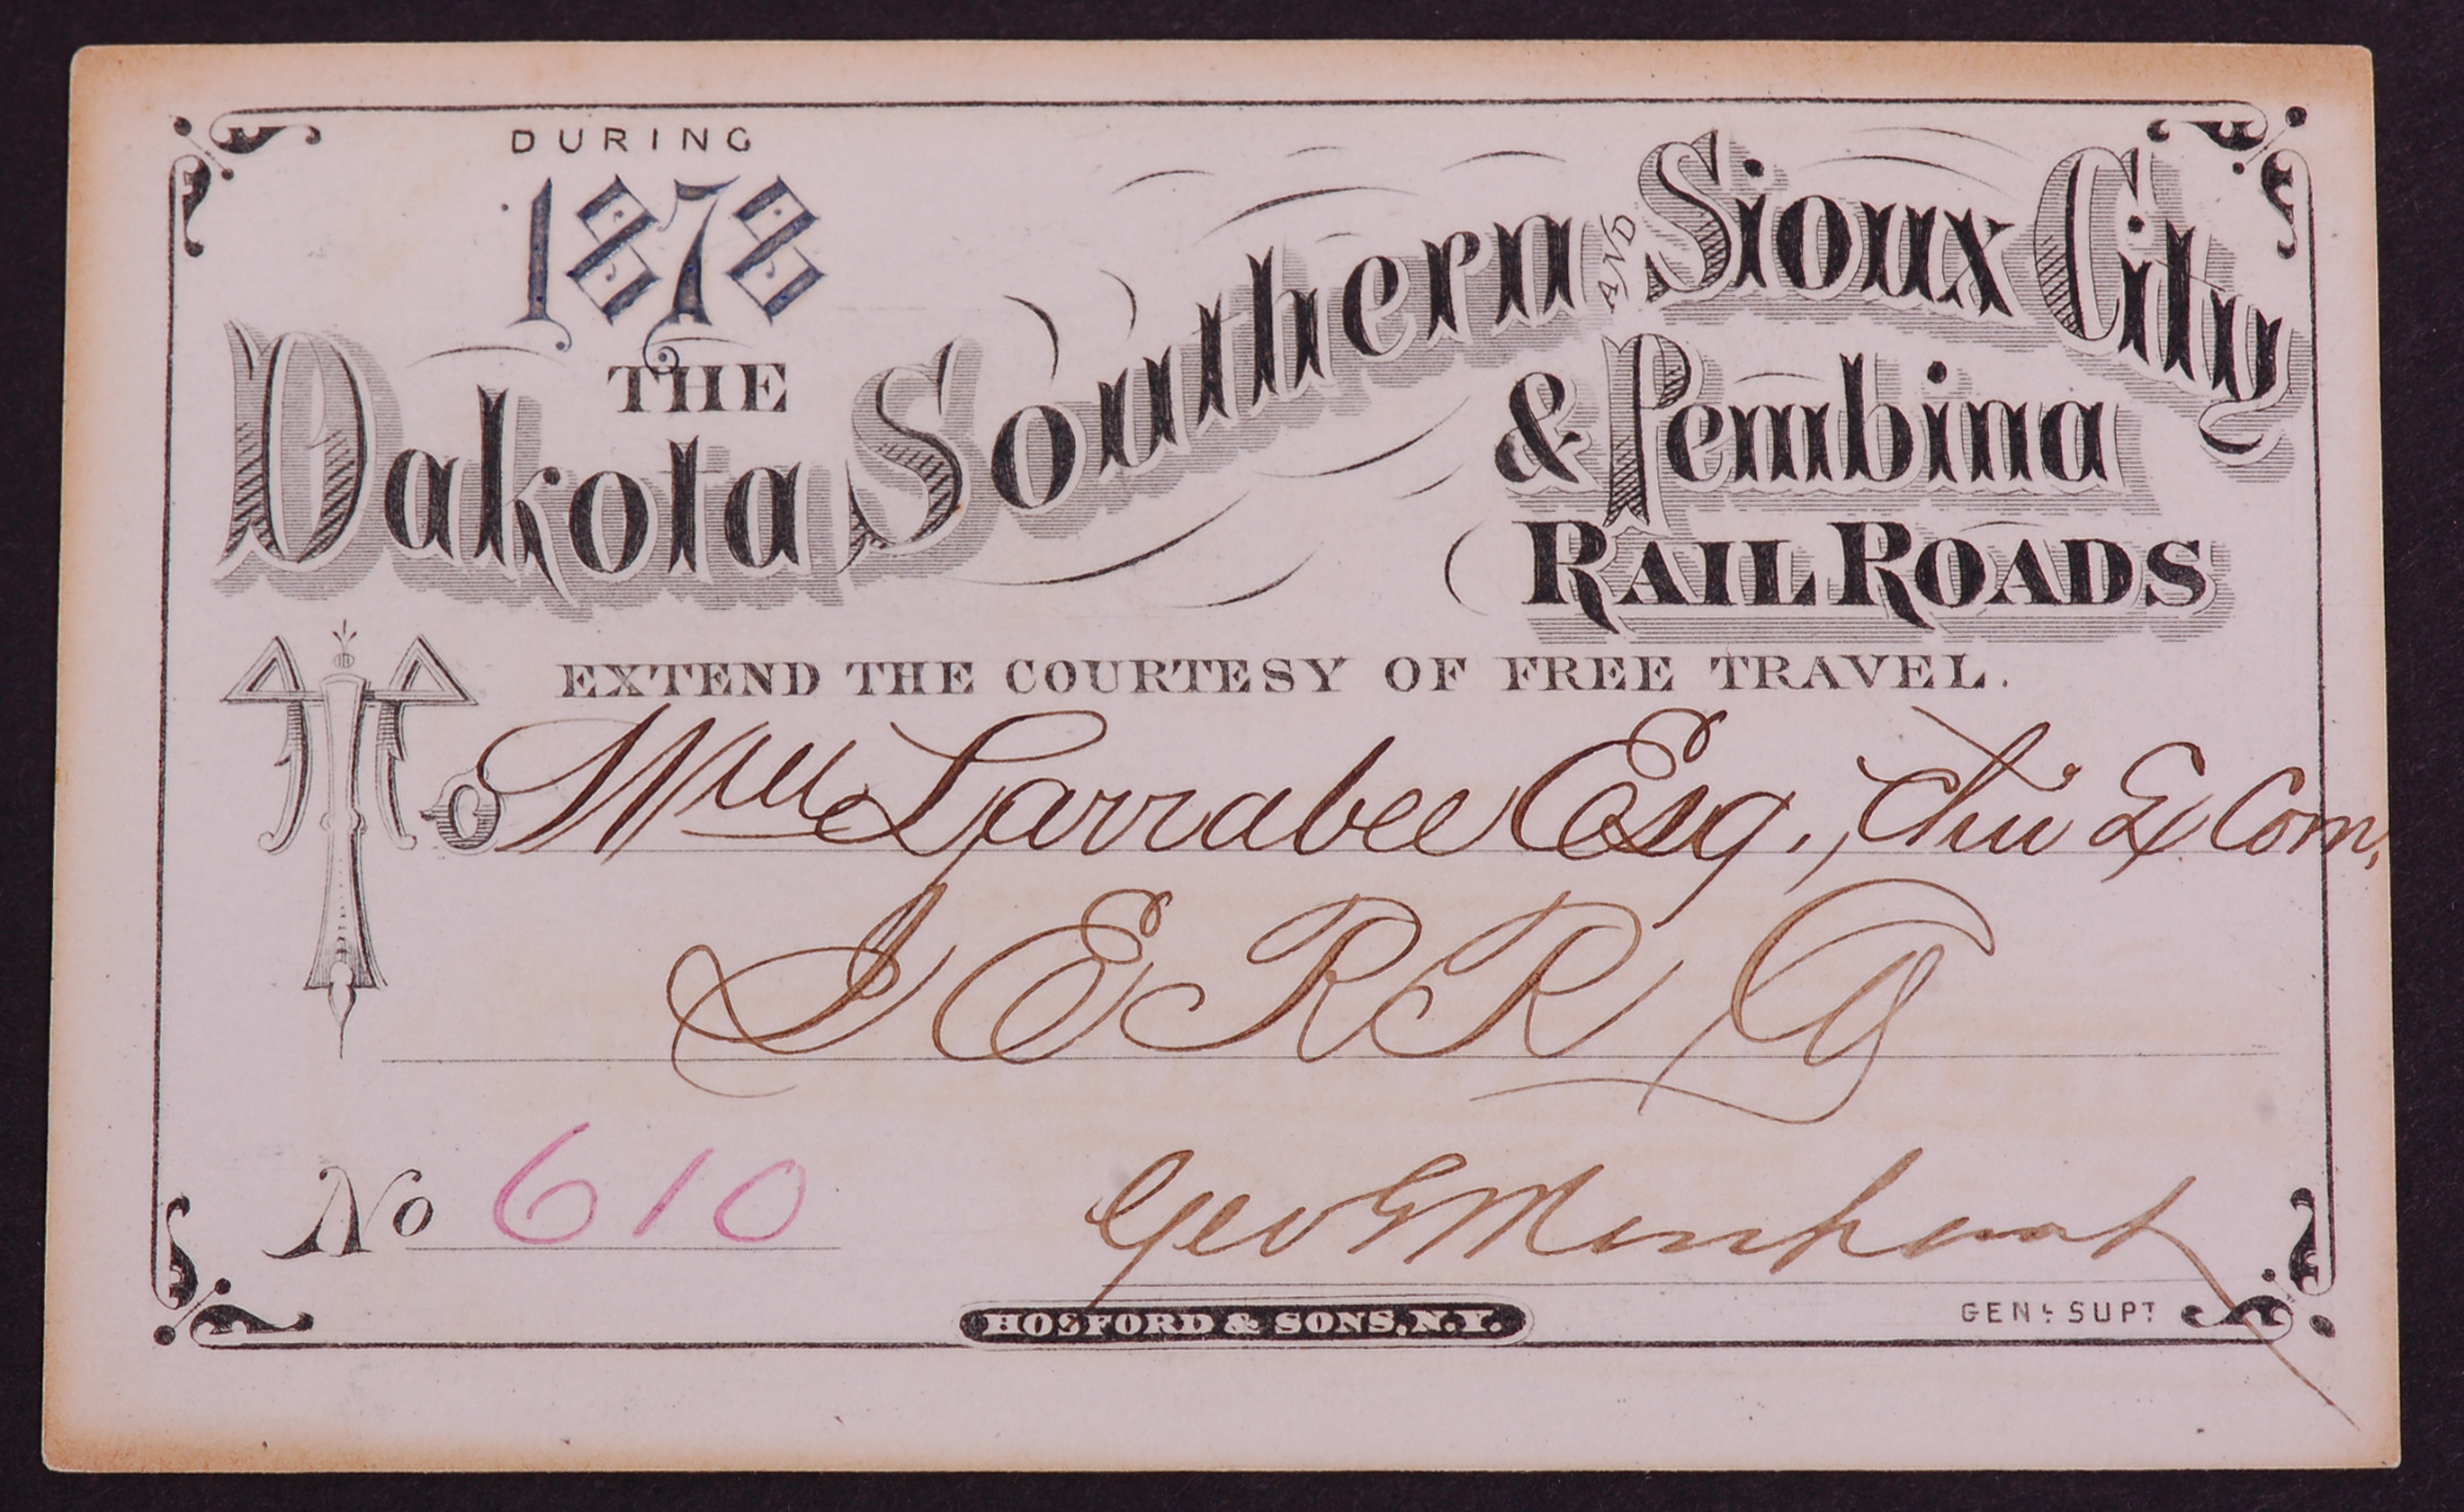 DURING
1878
THE
Dakota Southern AND Sioux City
& Pembina
RAIL ROADS
EXTEND THE COURTESY OF FREE TRAVEL.
To Wm Larrabee Esq., Ex Com,
I E R R Co
No 610
Geo E Merchant
HOSFORD & SONS, N.Y.
GENL SUPT